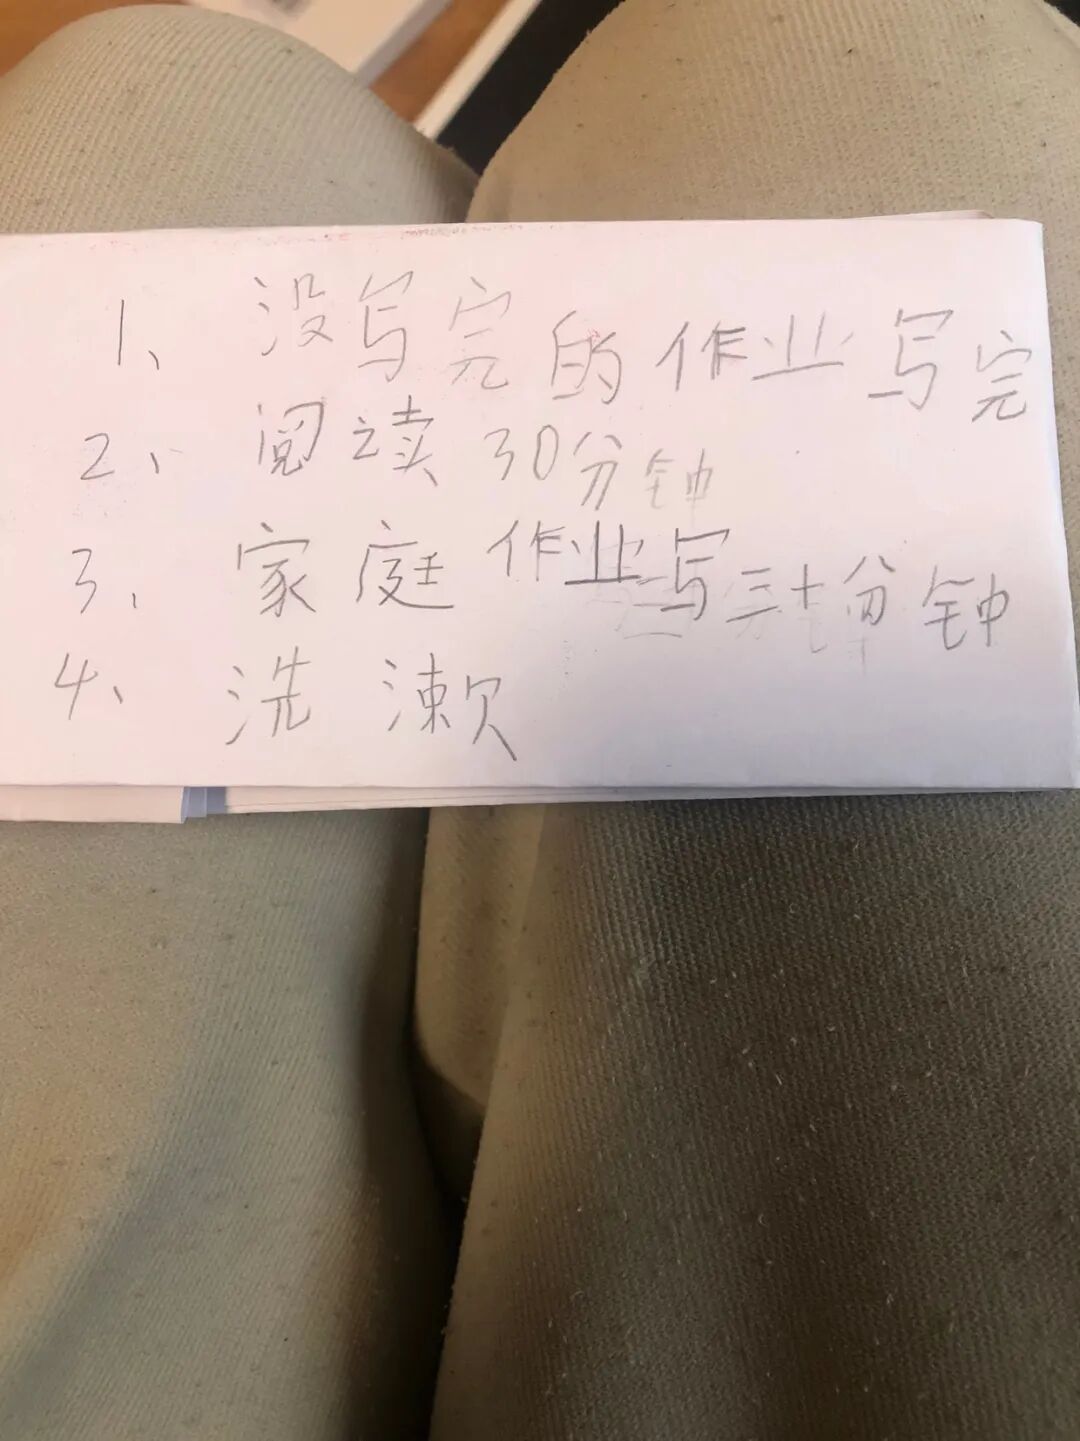 1、没写完的作业写完
2、阅读30分钟
3、家庭作业写三十分钟
4、洗漱